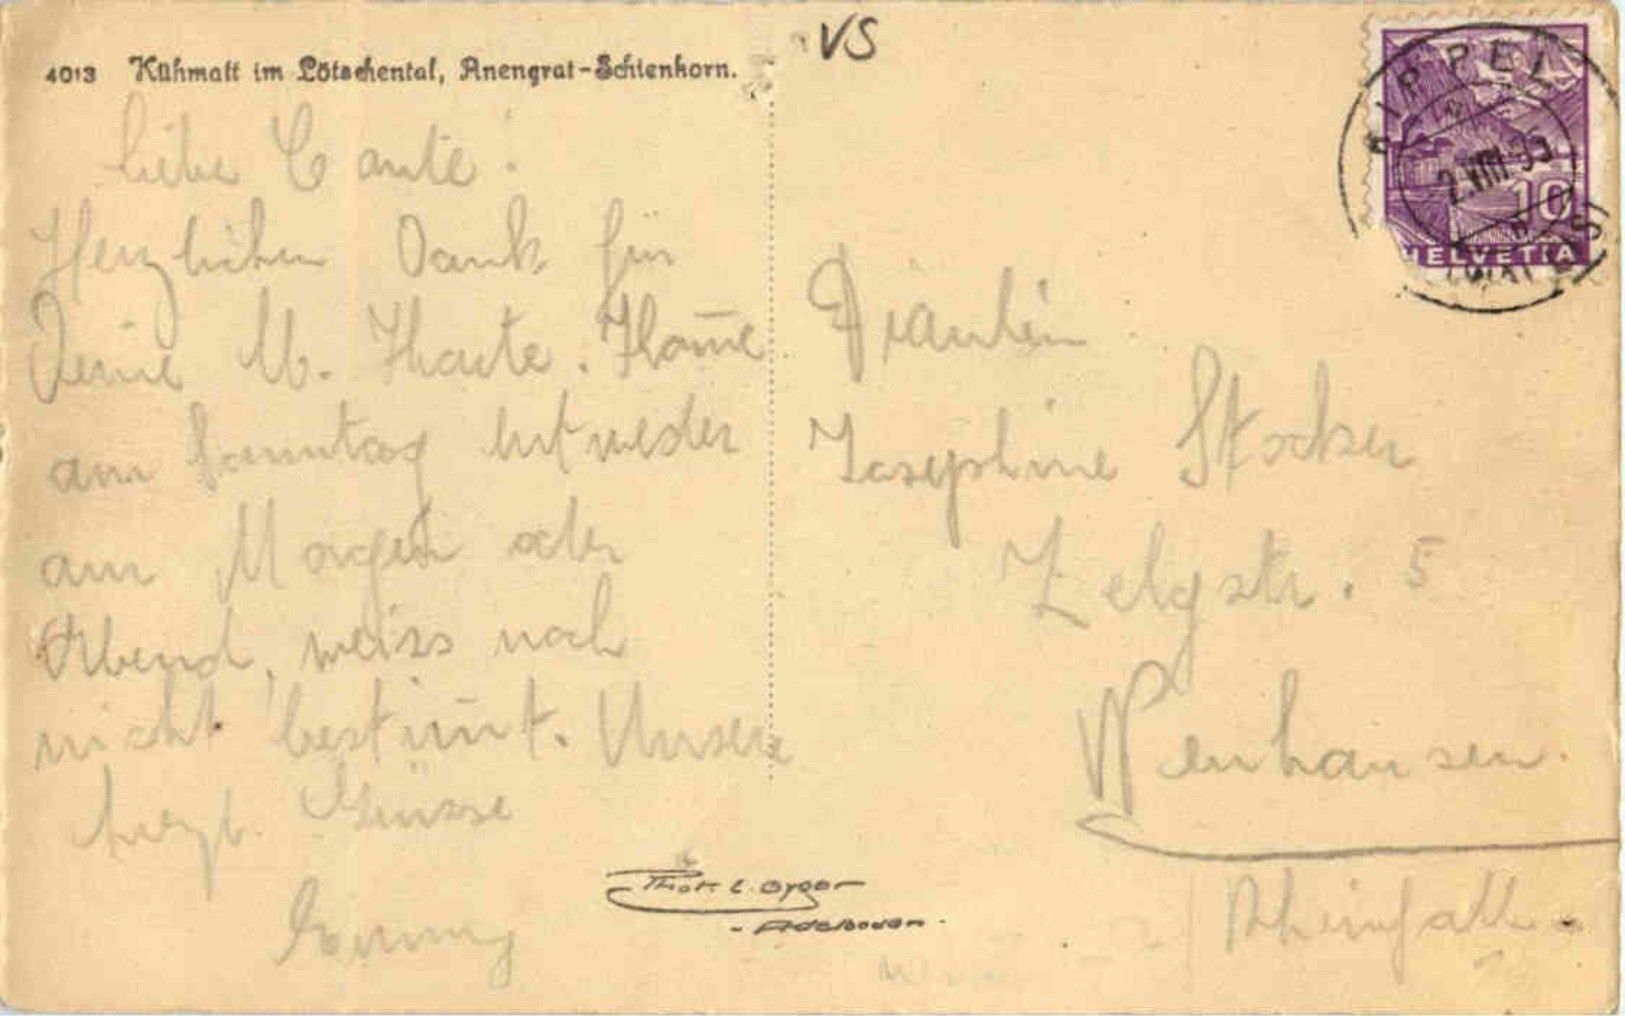 4013 Kühmatt im Lötschental, Anengrat-Schienhorn.
VS
KIPPEL
2.VIII.35
10
HELVETIA
Liebe Tante!
Herzlichen Dank für
Deine W. Karte. Kom̄e
am Sonntag entweder
am Morgen oder
Abend, weiss noch
nicht bestim̄t. Unsere
herzl. Grüsse
Fräulein
Josephine Stocker
Zelgstr. 5
Neuhausen
Rheinfall.
Phot. E. Gyger
- Adelboden -